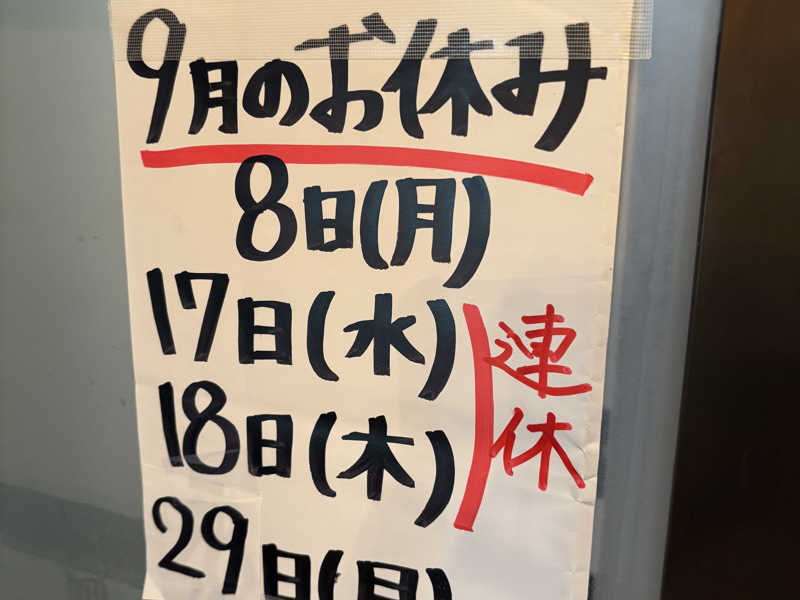 9月のお休み
8日(月)
17日(水)
18日(木)
連休
29日(月)